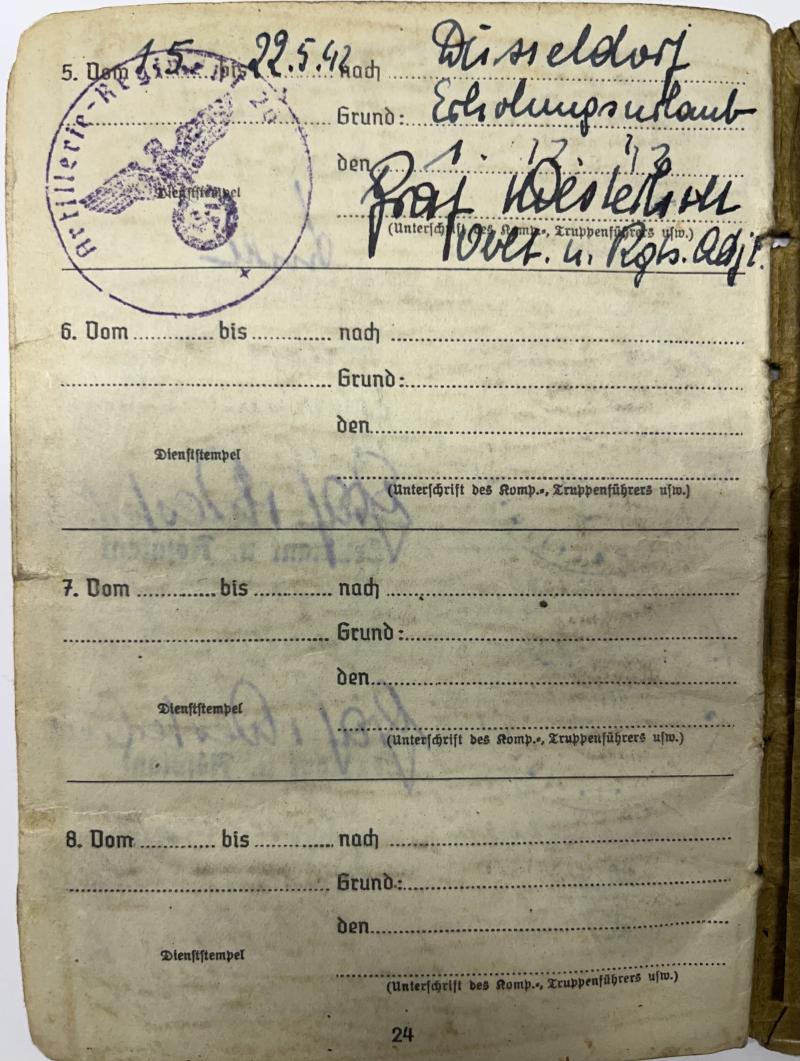 5. Vom 1.5. bis 22.5.42 nach Düsseldorf
Grund: Erholungsurlaub
den 1.
Dienststempel
Graf Westerholt
(Unterschrift des Komp.-, Truppenführers usw.)
Oblt. u. Rgts. Adjt.
Artillerie-Regiment 26
6. Vom ............ bis ............ nach ............
Grund: ............
den ............
Dienststempel
(Unterschrift des Komp.-, Truppenführers usw.)
7. Vom ............ bis ............ nach ............
Grund: ............
den ............
Dienststempel
(Unterschrift des Komp.-, Truppenführers usw.)
8. Vom ............ bis ............ nach ............
Grund: ............
den ............
Dienststempel
(Unterschrift des Komp.-, Truppenführers usw.)
24